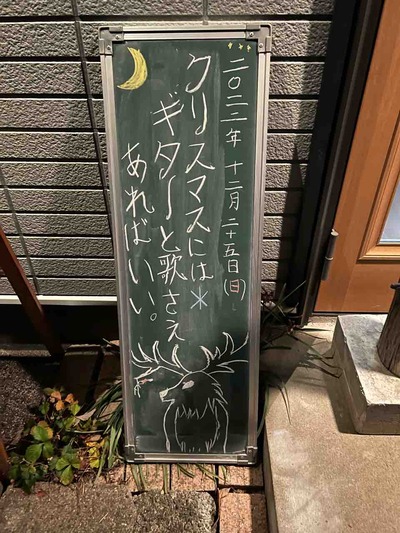 二〇二二年 十二月 二十五日(日)
クリスマスには
ギターと歌さえ
あればいい。